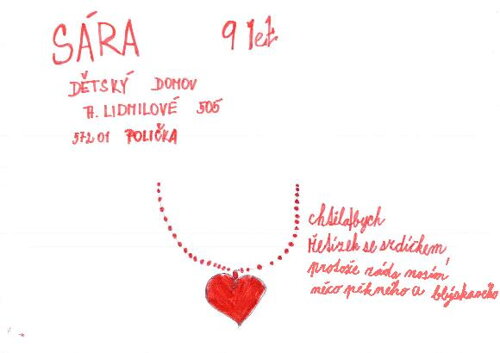 SÁRA 9 let
DĚTSKÝ DOMOV
A. LIDMILOVÉ 505
572 01 POLIČKA
chtěla bych
řetízek se srdíčkem
protože ráda nosím
něco pěkného a blýskavého